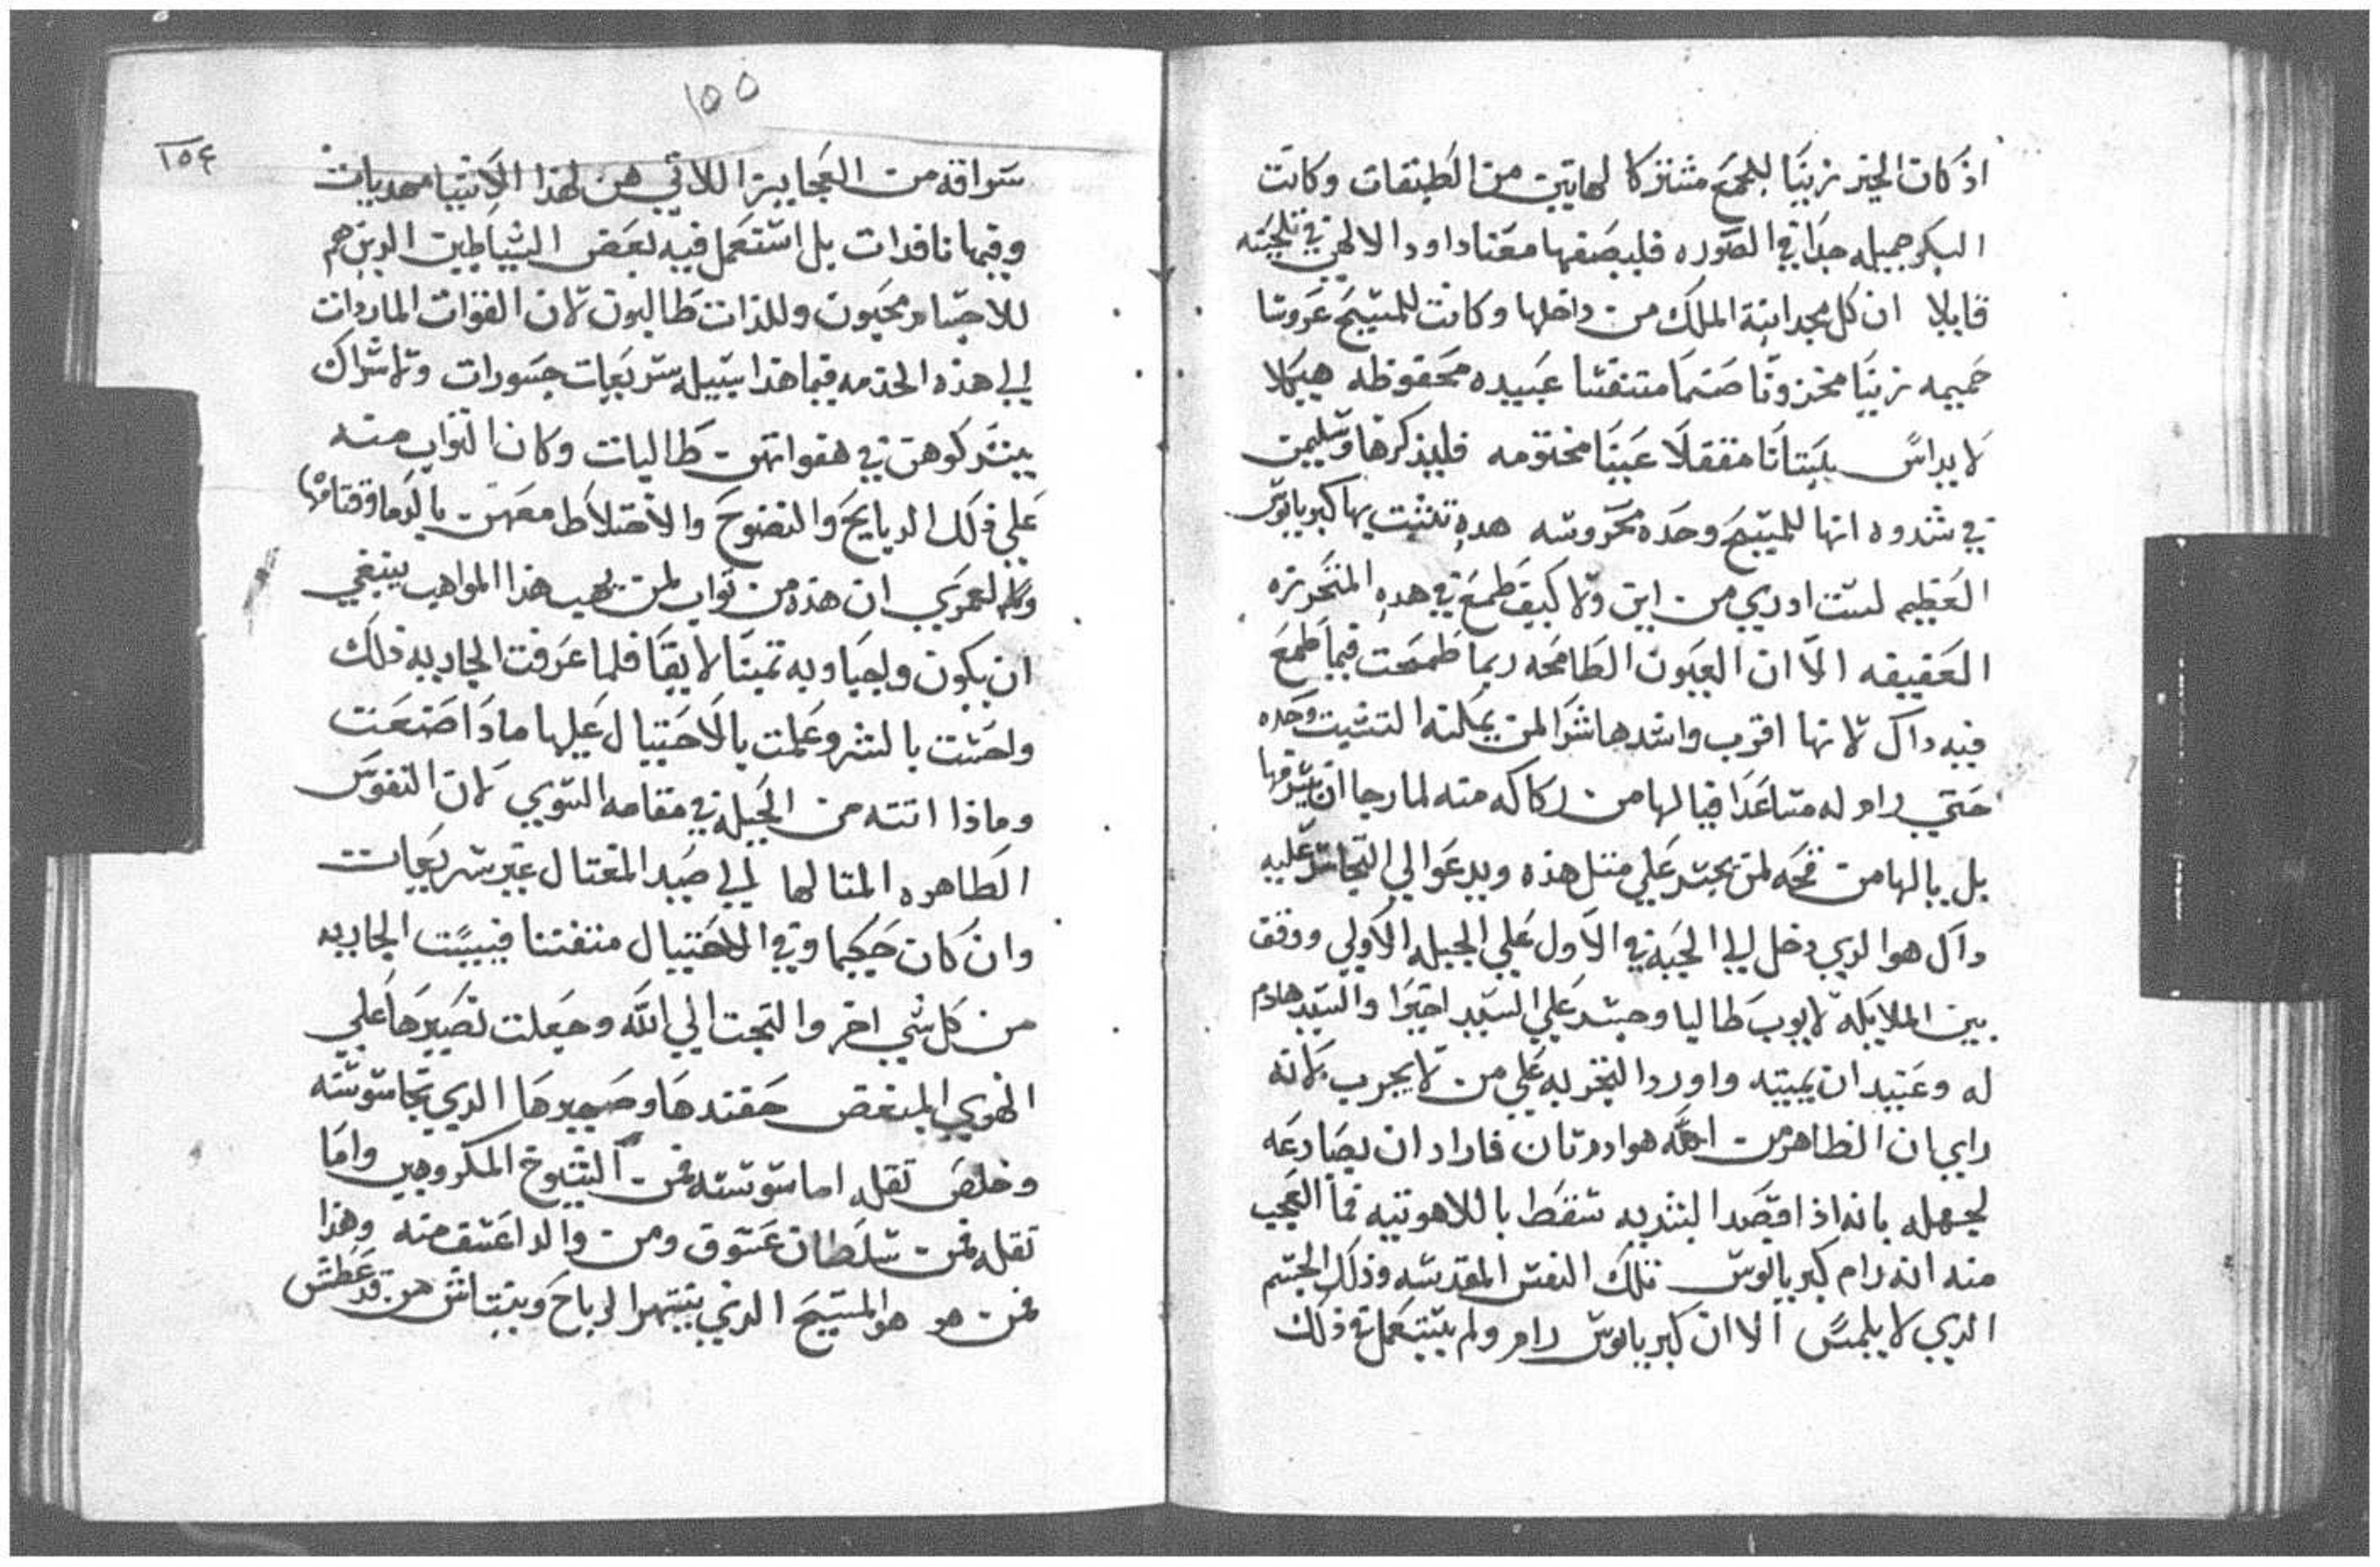 اذ كان الخير زينا للجميع مشتركا لهاتين من الطبقات وكانت
البكر جميله جدا في الصوره فليصفها معنا داود الالهي في تلحينه
قايلا ان كل مجد ابنة الملك من داخلها وكانت للمسيح عروسا
حميمه زينا مخزونا صنما متنفسا عبيده محفوظه هيكلا
لا يداس بستانا مقفلا عينا مختومه فليذكرها وسليمن
في شدوه انها للمسيح وحده محروسه هده تشبت بها كبريانوس
العظيم لست ادري من اين ولا كيف طمع في هده المتحرزه
العفيفه الا ان العيون الطامحه ربما طمحت فيما طمع
فيه داك لانها اقرب واشدها شرا لمن يمكنه التشبت وحده
حتي رام له مساعدا فيا لها من ركاكه منه لما رجا ان يسرقها
بل يا لها من قحه لمن يجسد علي مثل هذه ويدعوا الي التجاسر عليه
داك هو الدي دخل الي الجنة في الاول علي الجبله الاولي ووقف
بين الملايكه لايوب طالبا وجسد علي السيد اخيرا والسيد هادم
له وعتيد ان يميته واورد التجربه علي من لا يجرب لانه
راي ان الظاهر من الله هو ادم تان فاراد ان يصارعه
لجهله بانه اذا قصد البشريه سقط باللاهوتيه فما العجب
منه انه رام كبريانوس تلك النفس المقدسه وذلك الجسم
الدي لا يلمس الا ان كبريانوس رام ولم يستعمل في ذلك
١٥٥
١٥٤
سراقه من العجايز اللاتي هن لهذا الاشيا مهديات
وفيها نافدات بل استعمل فيه بعض الشياطين الدين هم
للاجساد محبون وللذات طالبون لان القوات الماردات
الي هذه الخدمه فيما هذا سبيله سريعات جسورات ولاشراك
يشركوهن في هفواتهن طالبات وكان التواب منه
علي ذلك الدبايح والنضوح والاختلاط معهن بالدما وقتامها
ولعمري ان هذه من تواب لمن يهب هذا المواهب ينبغي
ان يكون واجبا وبه تمينا لايقا فلما عرفت الجاريه ذلك
واحست بالشر وعلمت بالاحتيال عليها مادا صنعت
وماذا اتته من الحيله في مقامه السوي لان النفوس
الطاهره المتالها الي صيد المغتال غير سريعات
وان كان حكيما وفي الاحتيال متفننا فييست الجاريه
من كل شي اخر والتجت الي الله وجعلت نصيرها علي
الهوي المبغض حفندها وصحيرها الدي تجاسوسته
وخلص تقله اما سوسنه فمن الشيوخ المكروهين واما
تقله فمن سلطان عسوق ومن والد اعسف منه وهذا
فمن هو هو المسيح الذي ينتهر الرياح وينتاش من قد عطس